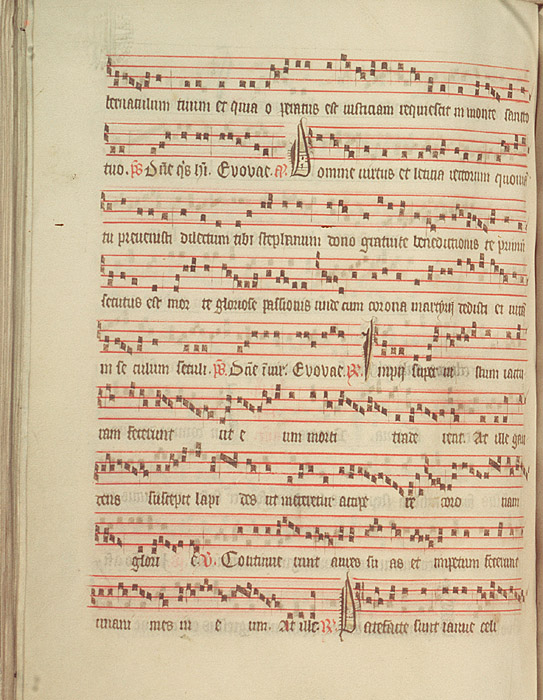 bernaculum tuum et quia o peratus est iusticiam requiescit in monte sancto
tuo. ps Dne qs hi. Evovae. a Domine virtus et leticia rectorum quoniam
tu prevenisti dilectum tibi stephanum dono gratuite benedictionis te primum
secutus est mor te gloriose passionis unde cum corona martyrij dedisti ei vita
in se culum seculi. ps Dne i vir. Evovae. R Impij super iu stum iactu
ram fecerunt ut e um morti trade rent. At ille gau
dens suscepit lapi des ut mereretur accipe re coro nam
glori e. v Continue runt aures su as et impetum fecerunt
unani mes in e um. At ille R Patefacte sunt ianue celi